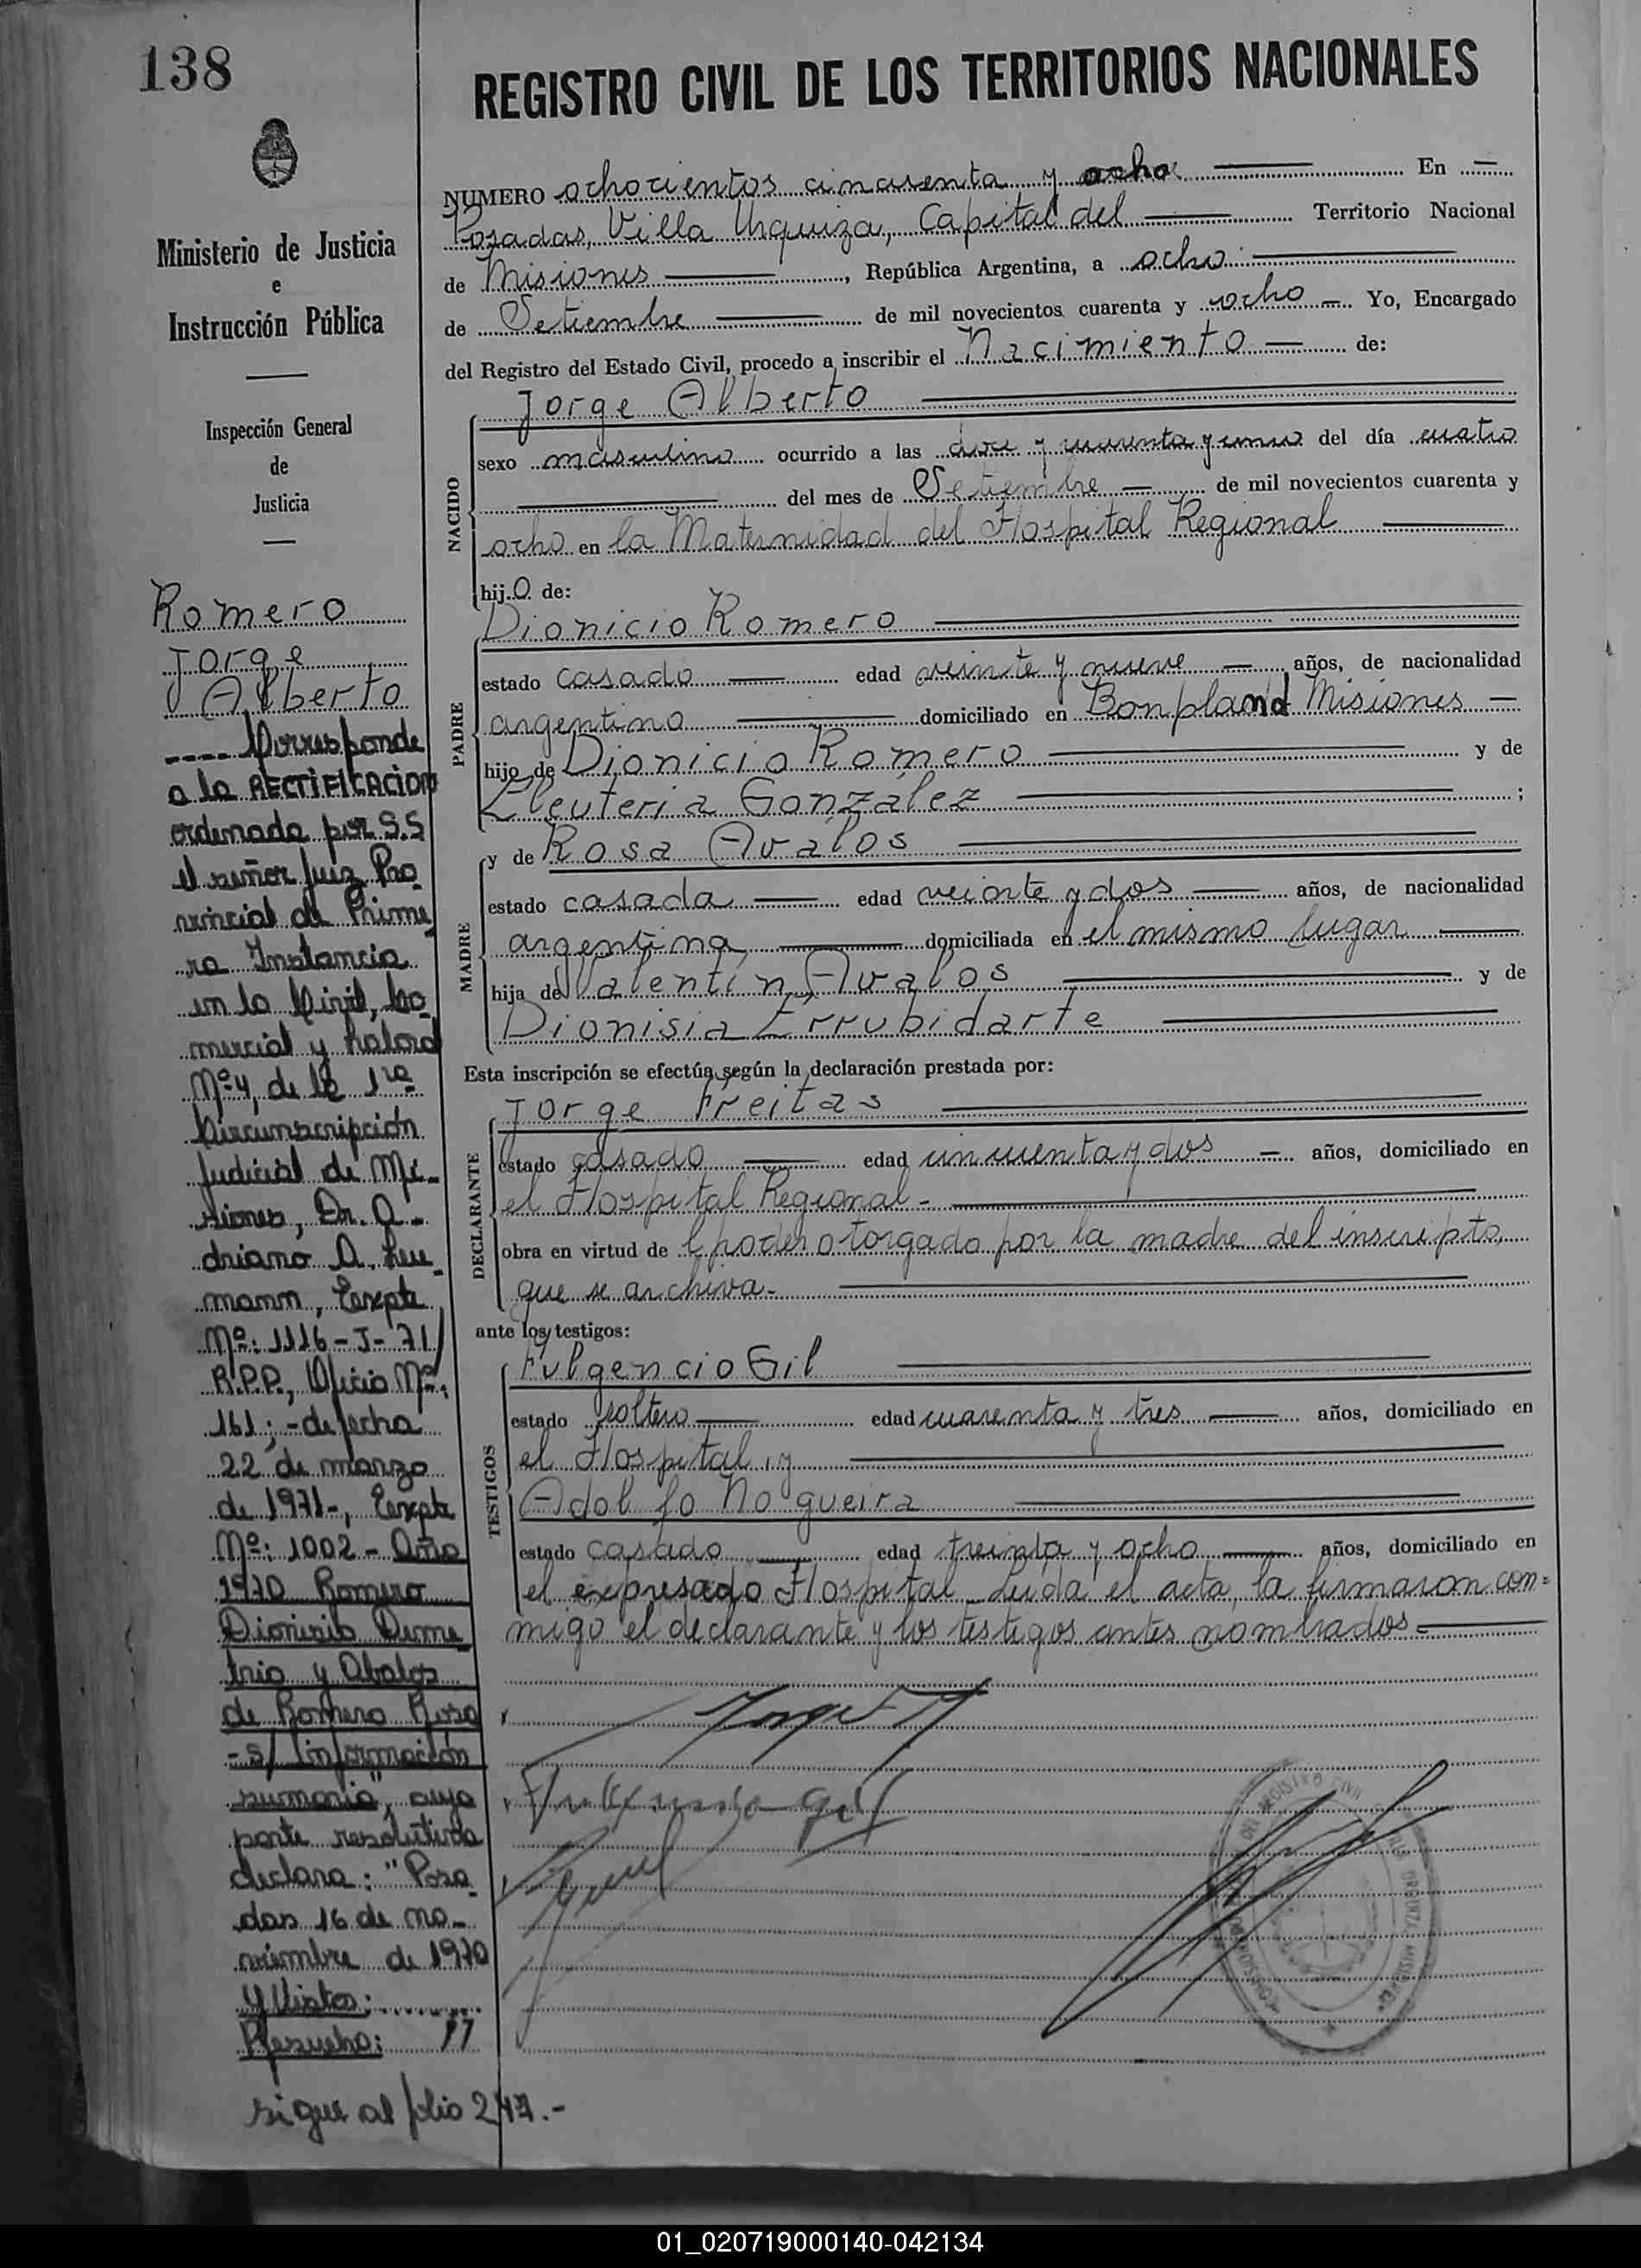 138
REGISTRO CIVIL DE LOS TERRITORIOS NACIONALES
Ministerio de Justicia
e
Instrucción Pública
Inspección General
de
Justicia
Romero
Jorge
Alberto
---- Corresponde
a la RECTIFICACION
ordenada por S.S
el señor Juez Pro-
vincial de Prime-
ra Instancia
en lo Civil, Co-
mercial y Laboral
Nº 4, de la 1ra
Circunscripción
Judicial de Mi-
siones, Dr. A-
driano A.
Expte
Nº: 1116-J-71/
R.P.P., Oficio Nº:
161; - de fecha
22 de marzo
de 1971-, Expte
Nº: 1002 - Año
1970 Romero
Dionisio Deme-
trio y Abalos
de Romero Rosa
- s/ información
sumaria", cuya
parte resolutiva
declara: "Posa-
das 16 de no-
viembre de 1970
Y Vistos: .........
Resuelvo:
sigue al folio 247.-
NUMERO ochocientos cincuenta y ocho En —
Posadas, Villa Urquiza, Capital del Territorio Nacional
de Misiones, República Argentina, a ocho
de Setiembre de mil novecientos cuarenta y ocho Yo, Encargado
del Registro del Estado Civil, procedo a inscribir el Nacimiento de:
NACIDO
Jorge Alberto
sexo masculino ocurrido a las doce y cuarenta y cinco del día cuatro
del mes de Setiembre de mil novecientos cuarenta y
ocho en la Maternidad del Hospital Regional
hijo de:
PADRE
Dionicio Romero
estado casado edad veinte y nueve años, de nacionalidad
argentino domiciliado en Bonpland Misiones
hijo de Dionicio Romero y de
Eleuteria González ;
MADRE
y de Rosa Avalos
estado casada edad veinte y dos años, de nacionalidad
argentina domiciliada en el mismo lugar
hija de Valentín Avalos y de
Dionisia Errubidarte
Esta inscripción se efectúa según la declaración prestada por:
DECLARANTE
Jorge Freitas
estado casado edad cincuenta y dos años, domiciliado en
el Hospital Regional.-
obra en virtud de l poder otorgado por la madre del inscripto,
que se archiva.-
ante los testigos:
TESTIGOS
Fulgencio Gil
estado soltero edad cuarenta y tres años, domiciliado en
el Hospital, y
Adolfo Nogueira
estado casado edad treinta y ocho años, domiciliado en
el expresado Hospital. Leida el acta, la firmaron con=
migo el declarante y los testigos antes nombrados.-
01_020719000140-042134